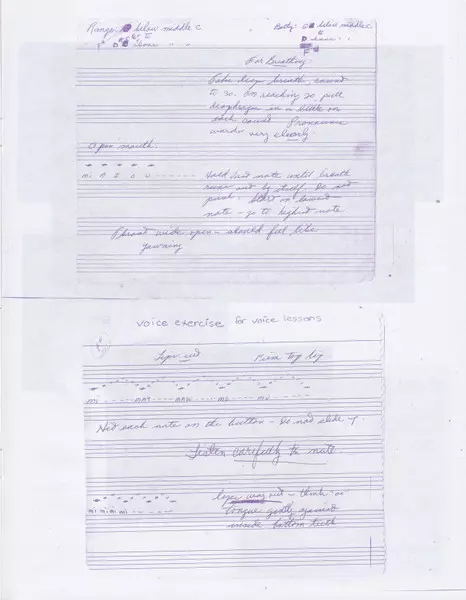 Range: G below middle C
Betty: G below middle C
D above " "
For Breathing
Take deep breath, count
to 30. On reaching 30, pull
diaphragm in a little on
each count. Pronounce
words very clearly.
Open mouth.
mi A I O U
Hold last note until breath
runs out by itself. Do not
push. Start on lowest
note - go to highest note
Throat wide open - should feel like
yawning
voice exercise for voice lessons
Lips out
mi MAY MAW MO MU
Hit each note on the button - Do not slide up
Listen carefully to note.
mi mi mi mi
Lips way out - think oo
Tongue gently against
inside bottom teeth